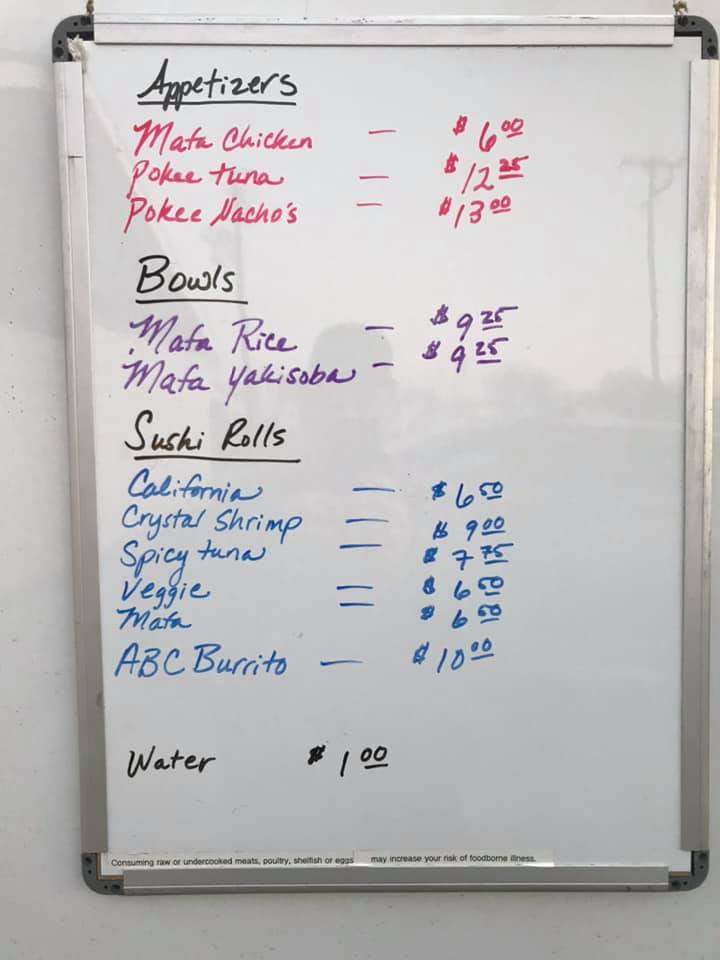 Appetizers
Mafa Chicken — $6.00
Pokee tuna — $12.25
Pokee Nacho's — $13.00
Bowls
Mafa Rice — $9.25
Mafa Yakisoba — $9.25
Sushi Rolls
California — $6.50
Crystal Shrimp — $9.00
Spicy tuna — $7.75
Veggie — $6.50
Mafa — $6.50
ABC Burrito — $10.00
Water $1.00
Consuming raw or undercooked meats, poultry, shellfish or eggs may increase your risk of foodborne illness.